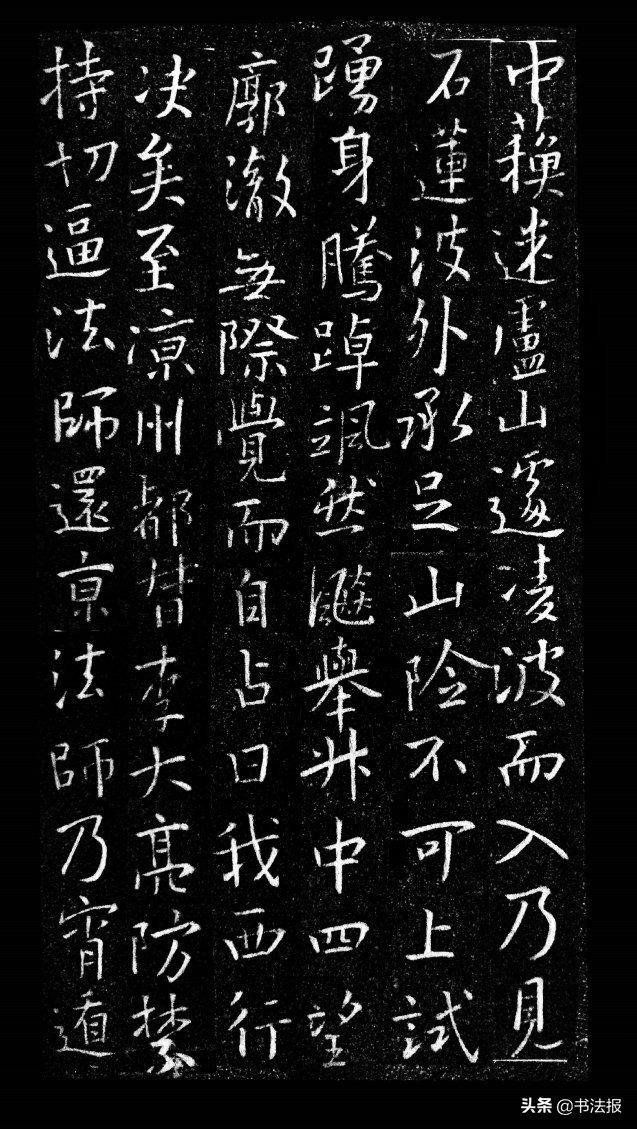 中蘓迷盧山遽凌波而入乃見
石蓮波外承足山險不可上試
踴身騰踔颯然飈舉升中四望
廓澈無際覺而自占曰我西行
决矣至涼州都督李大亮防禁
持切逼法師還京法師乃宵遁
头条 @书法报